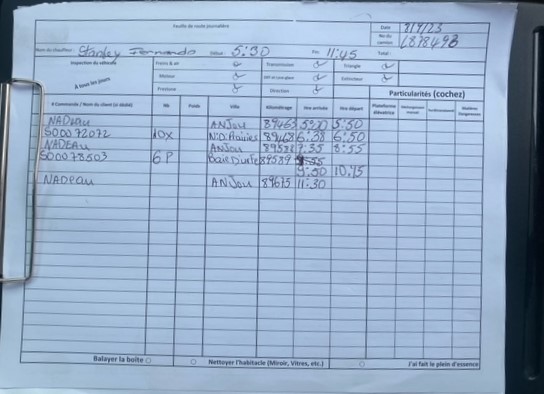 Feuille de route journalière
Date 9/9/23
No du camion L898493
Nom du chauffeur : Stanley Fernando Début : 5:30 Fin : 11:45 Total :
Inspection du véhicule
À tous les jours
Freins & air Transmission Triangle
Moteur Extincteur
Direction
Particularités (cochez)
# Commande / Nom du client (si dédié) Nb Poids Ville Kilométrage Hre arrivée Hre départ Plateforme élévatrice Matières Dangereuses
NADEAU ANJOU 5:30 5:50
SO0072072 10x 89468 6:38 6:50
NADEAU ANJOU 7:35 8:55
SO0078503 6P 89589
9:50 10:15
NADEAU ANJOU 89675 11:30
Balayer la boîte Nettoyer l'habitacle (Miroir, Vitres, etc.) J'ai fait le plein d'essence